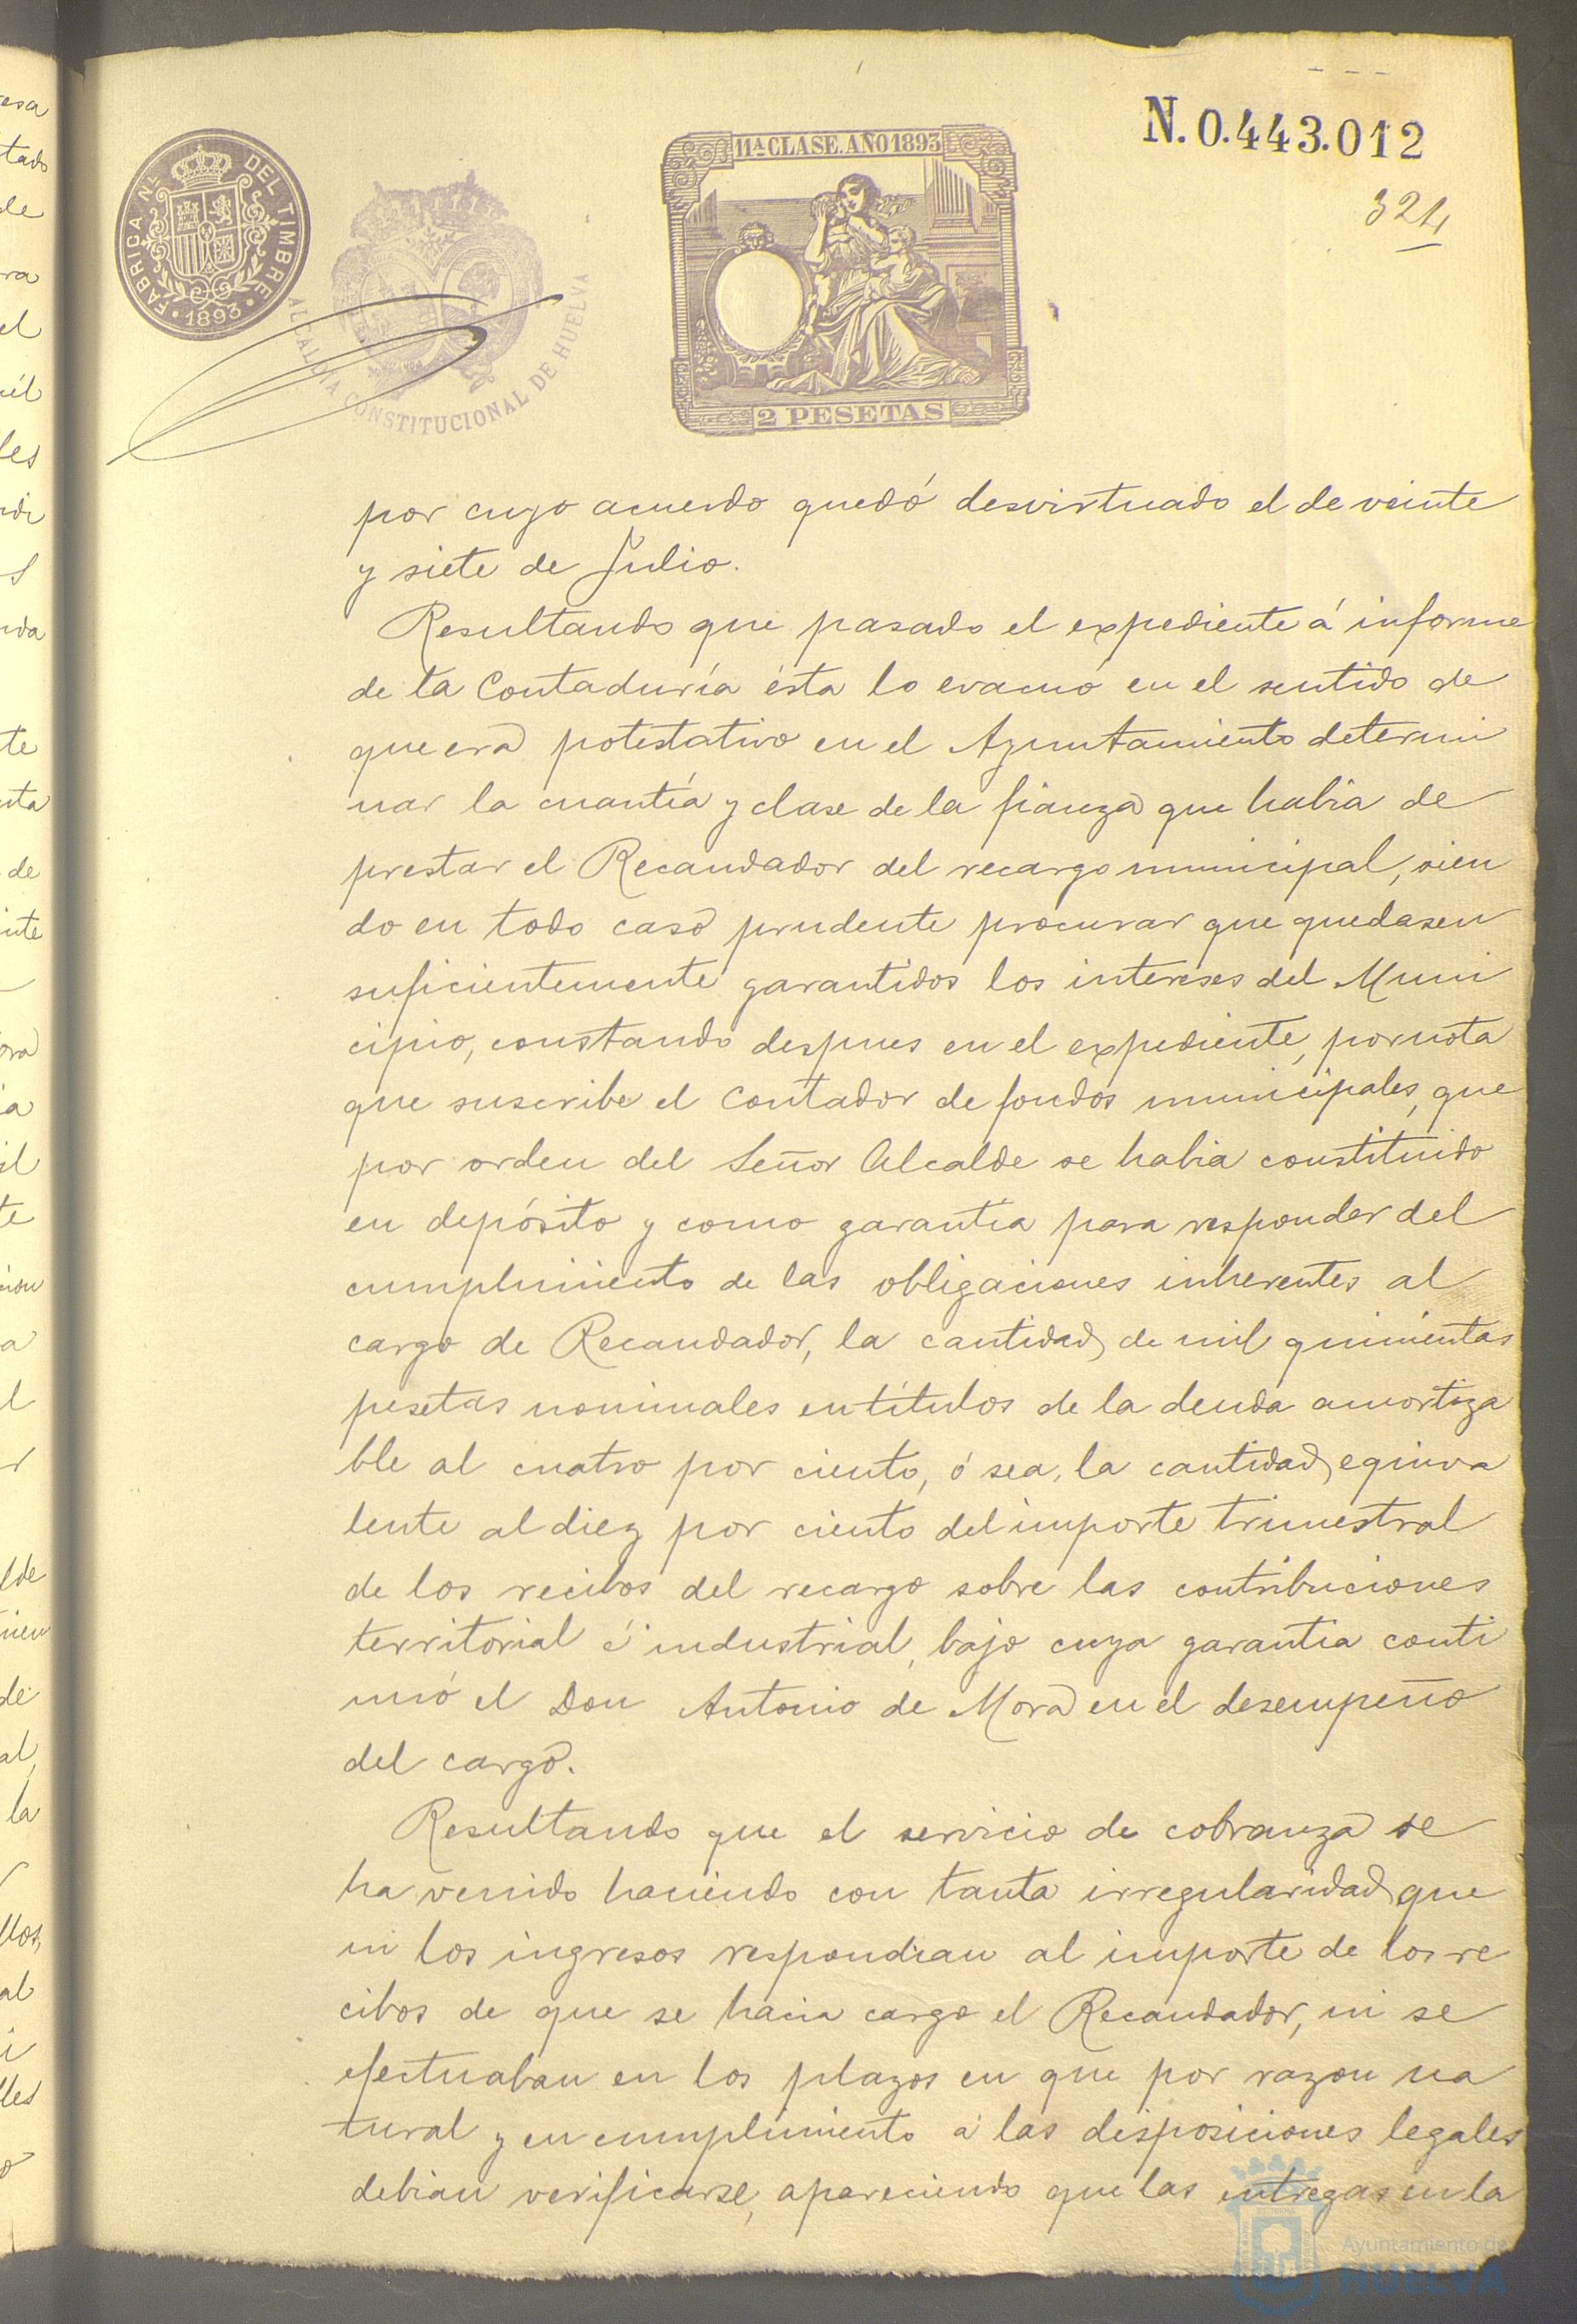 N. 0.443.012
324
FABRICA NL DEL TIMBRE
1893
ALCALDIA CONSTITUCIONAL DE HUELVA
11ª CLASE. AÑO 1893
2 PESETAS
por cuyo acuerdo quedó desvirtuado el de veinte
y siete de Julio.
Resultando que pasado el expediente á informe
de la Contaduría ésta lo evacuó en el sentido de
que era potestativo en el Ayuntamiento determi
nar la cuantía y clase de la fianza que habia de
prestar el Recaudador del recargo municipal, sien
do en todo caso prudente procurar que quedasen
suficientemente garantidos los intereses del Muni
cipio, constando despues en el expediente, por nota
que suscribe el Contador de fondos municipales, que
por orden del Señor Alcalde se habia constituido
en depósito y como garantía para responder del
cumplimiento de las obligaciones inherentes al
cargo de Recaudador, la cantidad de mil quinientas
pesetas nominales en títulos de la deuda amortiza
ble al cuatro por ciento, ó sea, la cantidad equiva
lente al diez por ciento del importe trimestral
de los recibos del recargo sobre las contribuciones
territorial é industrial, bajo cuya garantia conti
nuó el Don Antonio de Mora en el desempeño
del cargo.
Resultando que el servicio de cobranza se
ha venido haciendo con tanta irregularidad que
ni los ingresos respondian al importe de los re
cibos de que se hacia cargo el Recaudador, ni se
efectuaban en los plazos en que por razon na
tural y en cumplimiento á las disposiciones legales
debian verificarse, apareciendo que las entregas en la
Ayuntamiento de
HUELVA